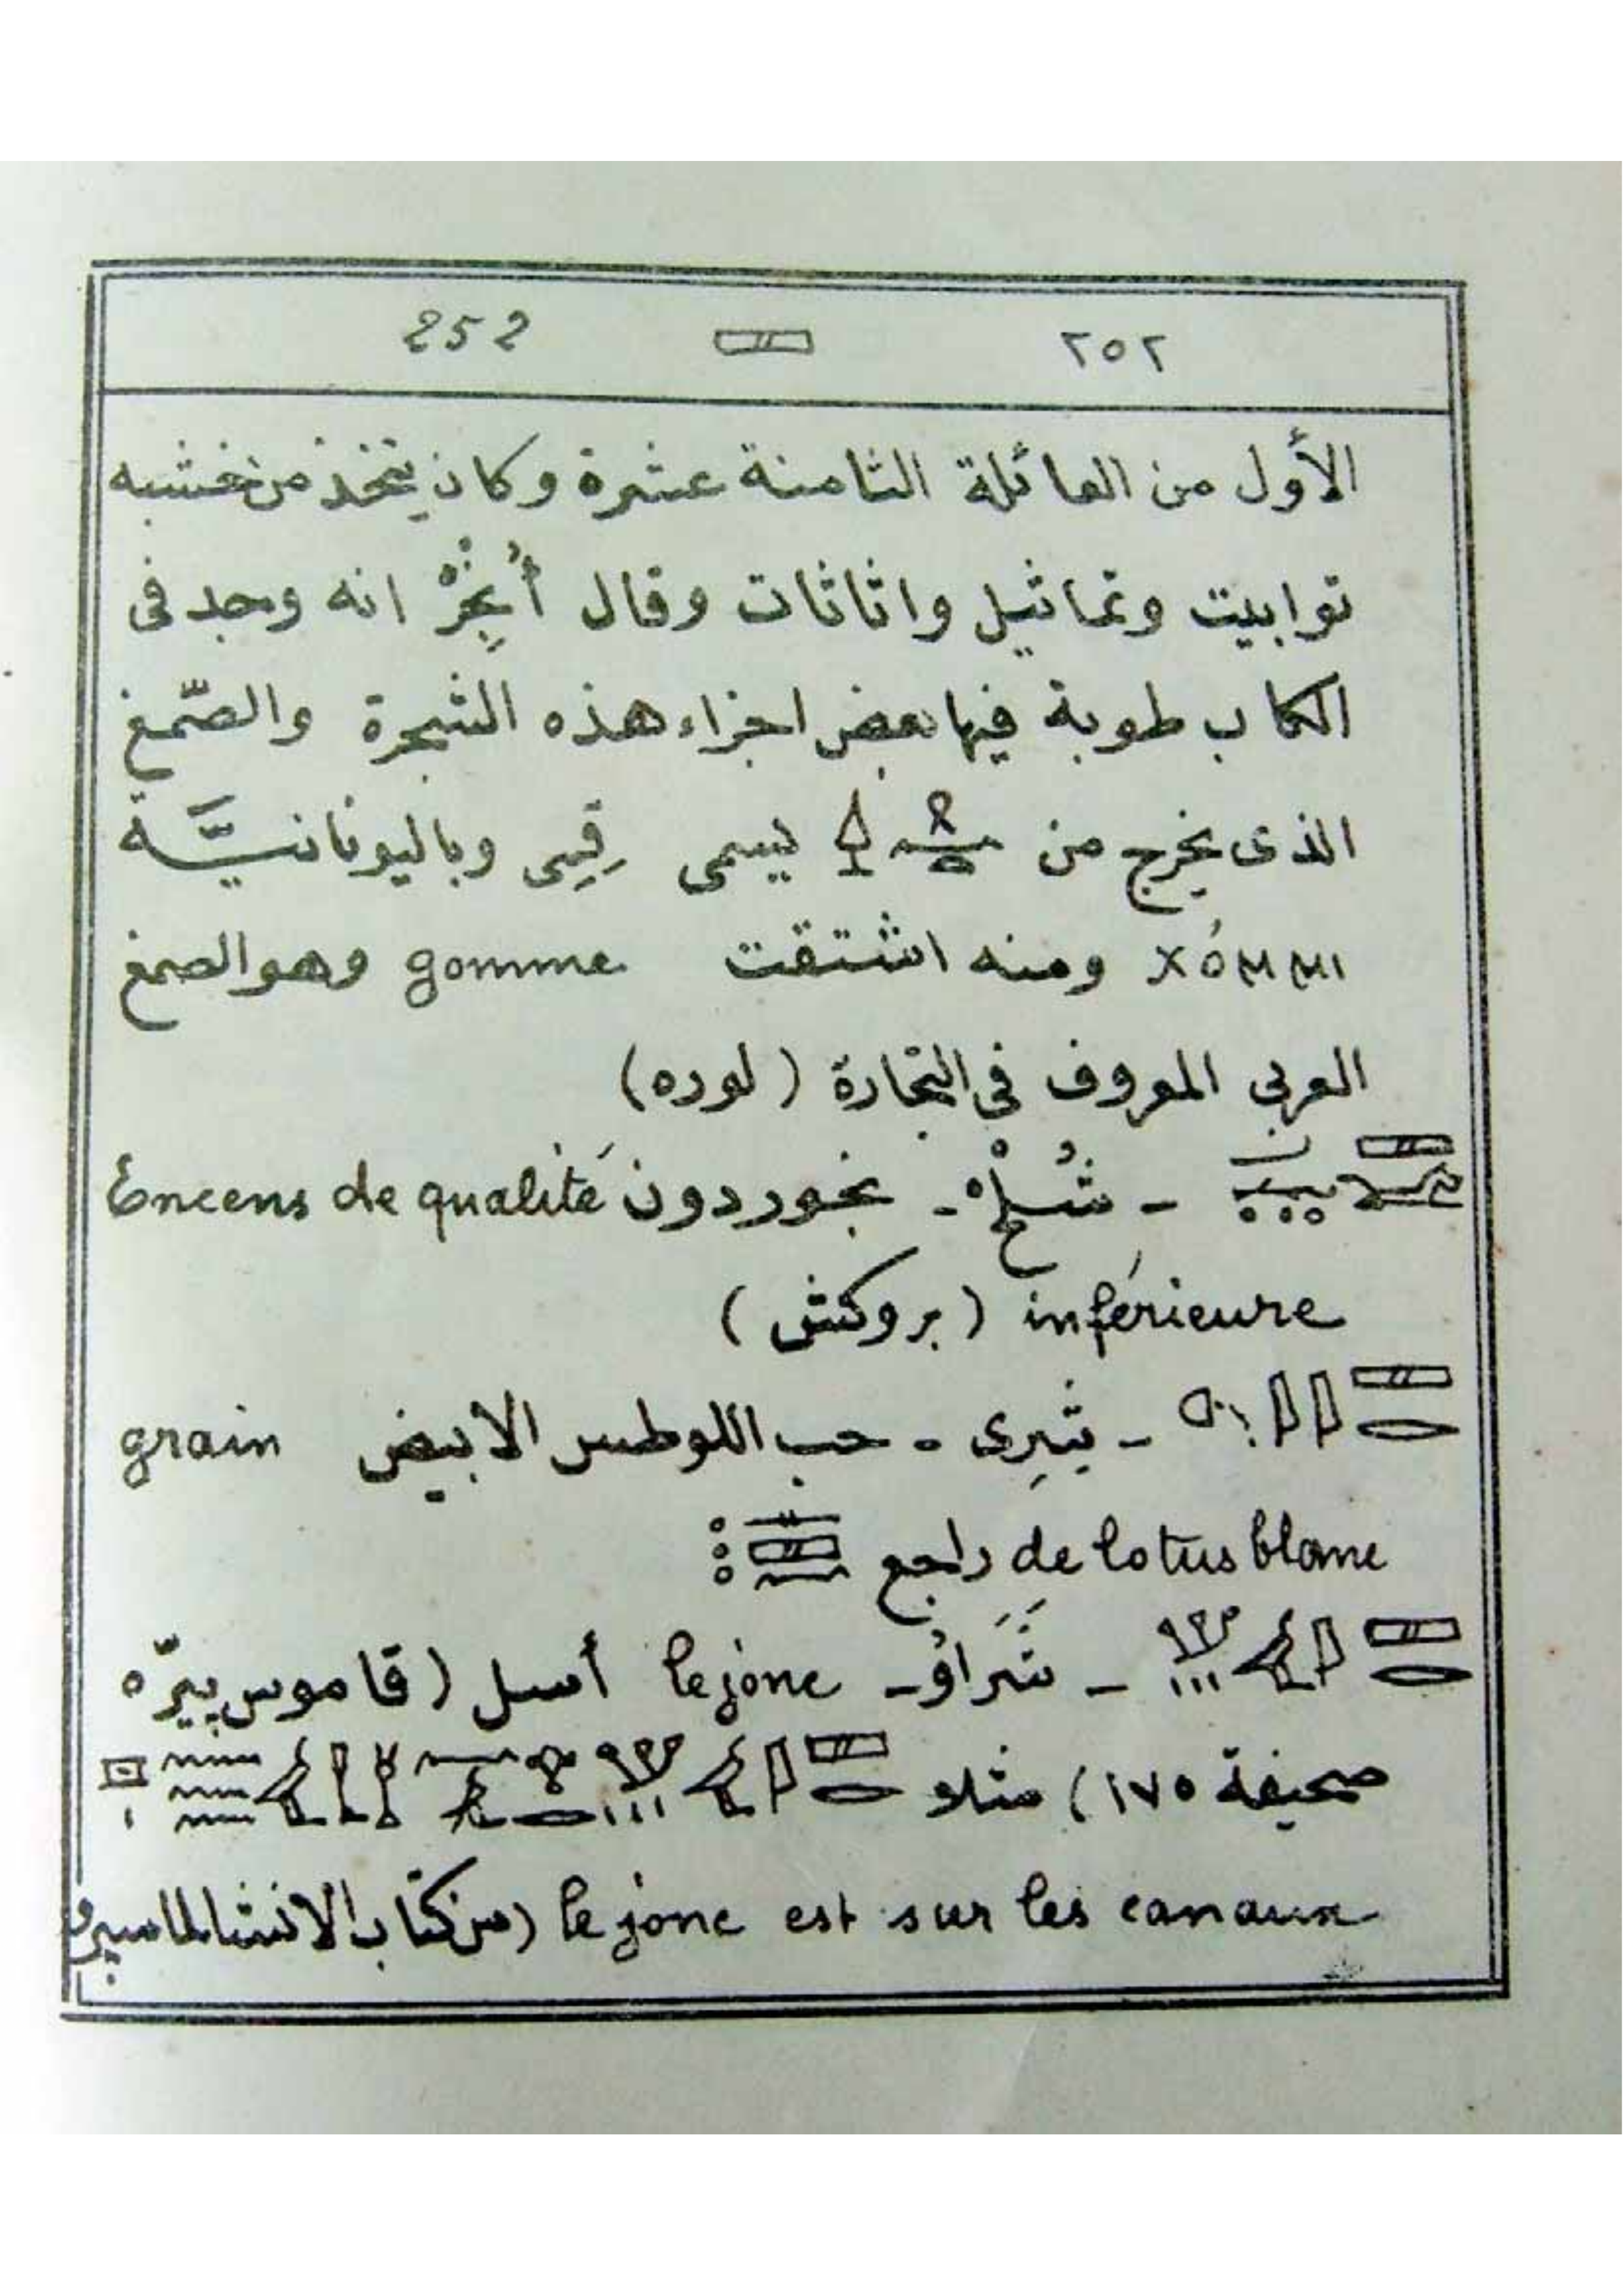 ٢٥٢ 252
الأول من العائلة الثامنة عشرة وكان يتخذ من خشبه
توابيت وتماثيل واثاثات وقال أُنْجِرْ انه وجد فى
الكاب طوبة فيها بعض اجزاء هذه الشجرة والصّمغ
الذى يخرج من يسمى قِمِى وباليونانيَّة
χόμμι ومنه اشتقت gomme وهو الصمغ
العربى المعروف فى التجارة (لوره)
- شُسْخْ - بخور دون Encens de qualité
inférieure (بروكش)
- شِرِى - حب اللوطس الابيض grain
de lotus blanc راجع
- شَرَاوُ - le jonc أسل (قاموس پيرّه
صحيفة ١٧٥) مثلا
le jonc est sur les canaux (من كتاب الانشا لماسبرو